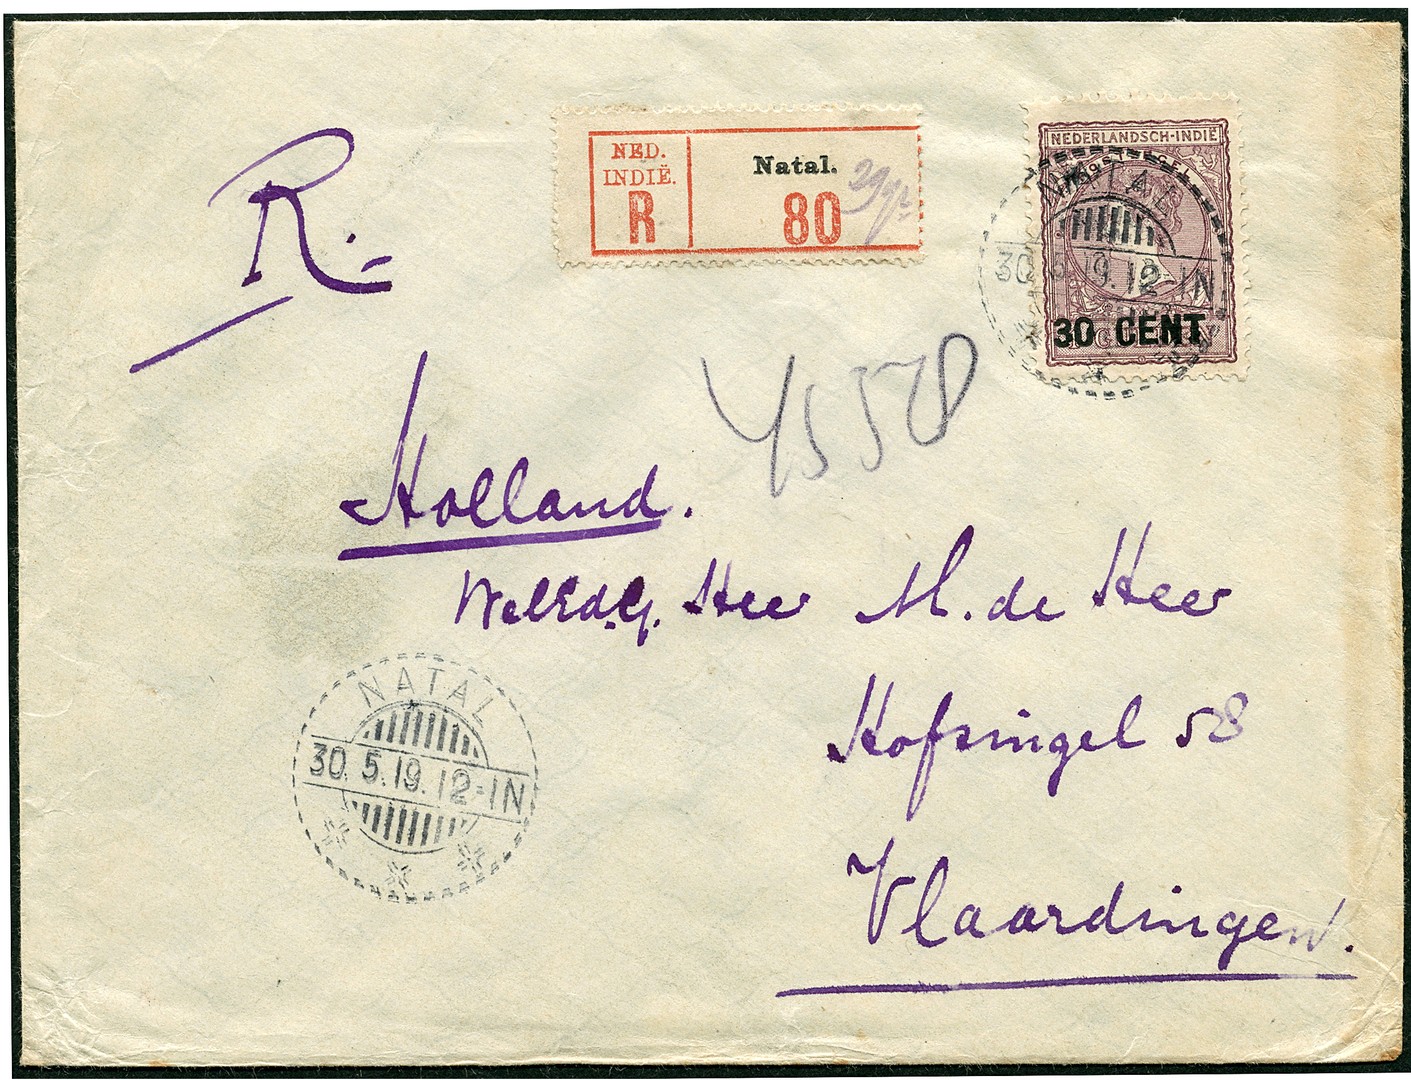 R.
NED.
INDIË.
R
Natal.
80
NEDERLANDSCH-INDIË
POSTZEGEL
30 CENT
NATAL
30.5.19.12-1N
Holland.
WelEd.G. Heer M. de Heer
Hofsingel 58
Vlaardingen.
NATAL
30.5.19.12-1N